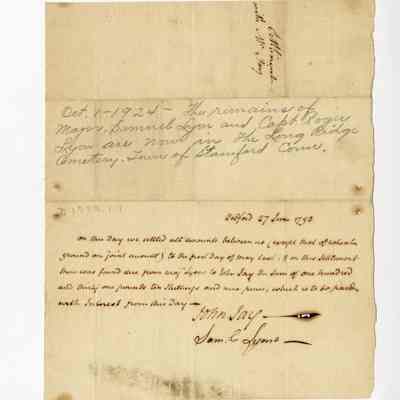 Settlement
with Mr Jay
Oct. 1-1924 - The remains of
Major Samuel Lyon and Capt Roger
Lyon are now in the Long Ridge
Cemetery, Town of Stamford Conn.
Bedford 27 June 1793
on this Day we settled all accounts between us, except that of
ground on joint account) to the first Day of may last. & on this settlement
there was found due from maj.r Lyons to John Jay the sum of one hundred
and thirty one pounds ten shillings and nine pence, which is to be paid
with Interest from this Day —
John Jay
Sam.l Lyons